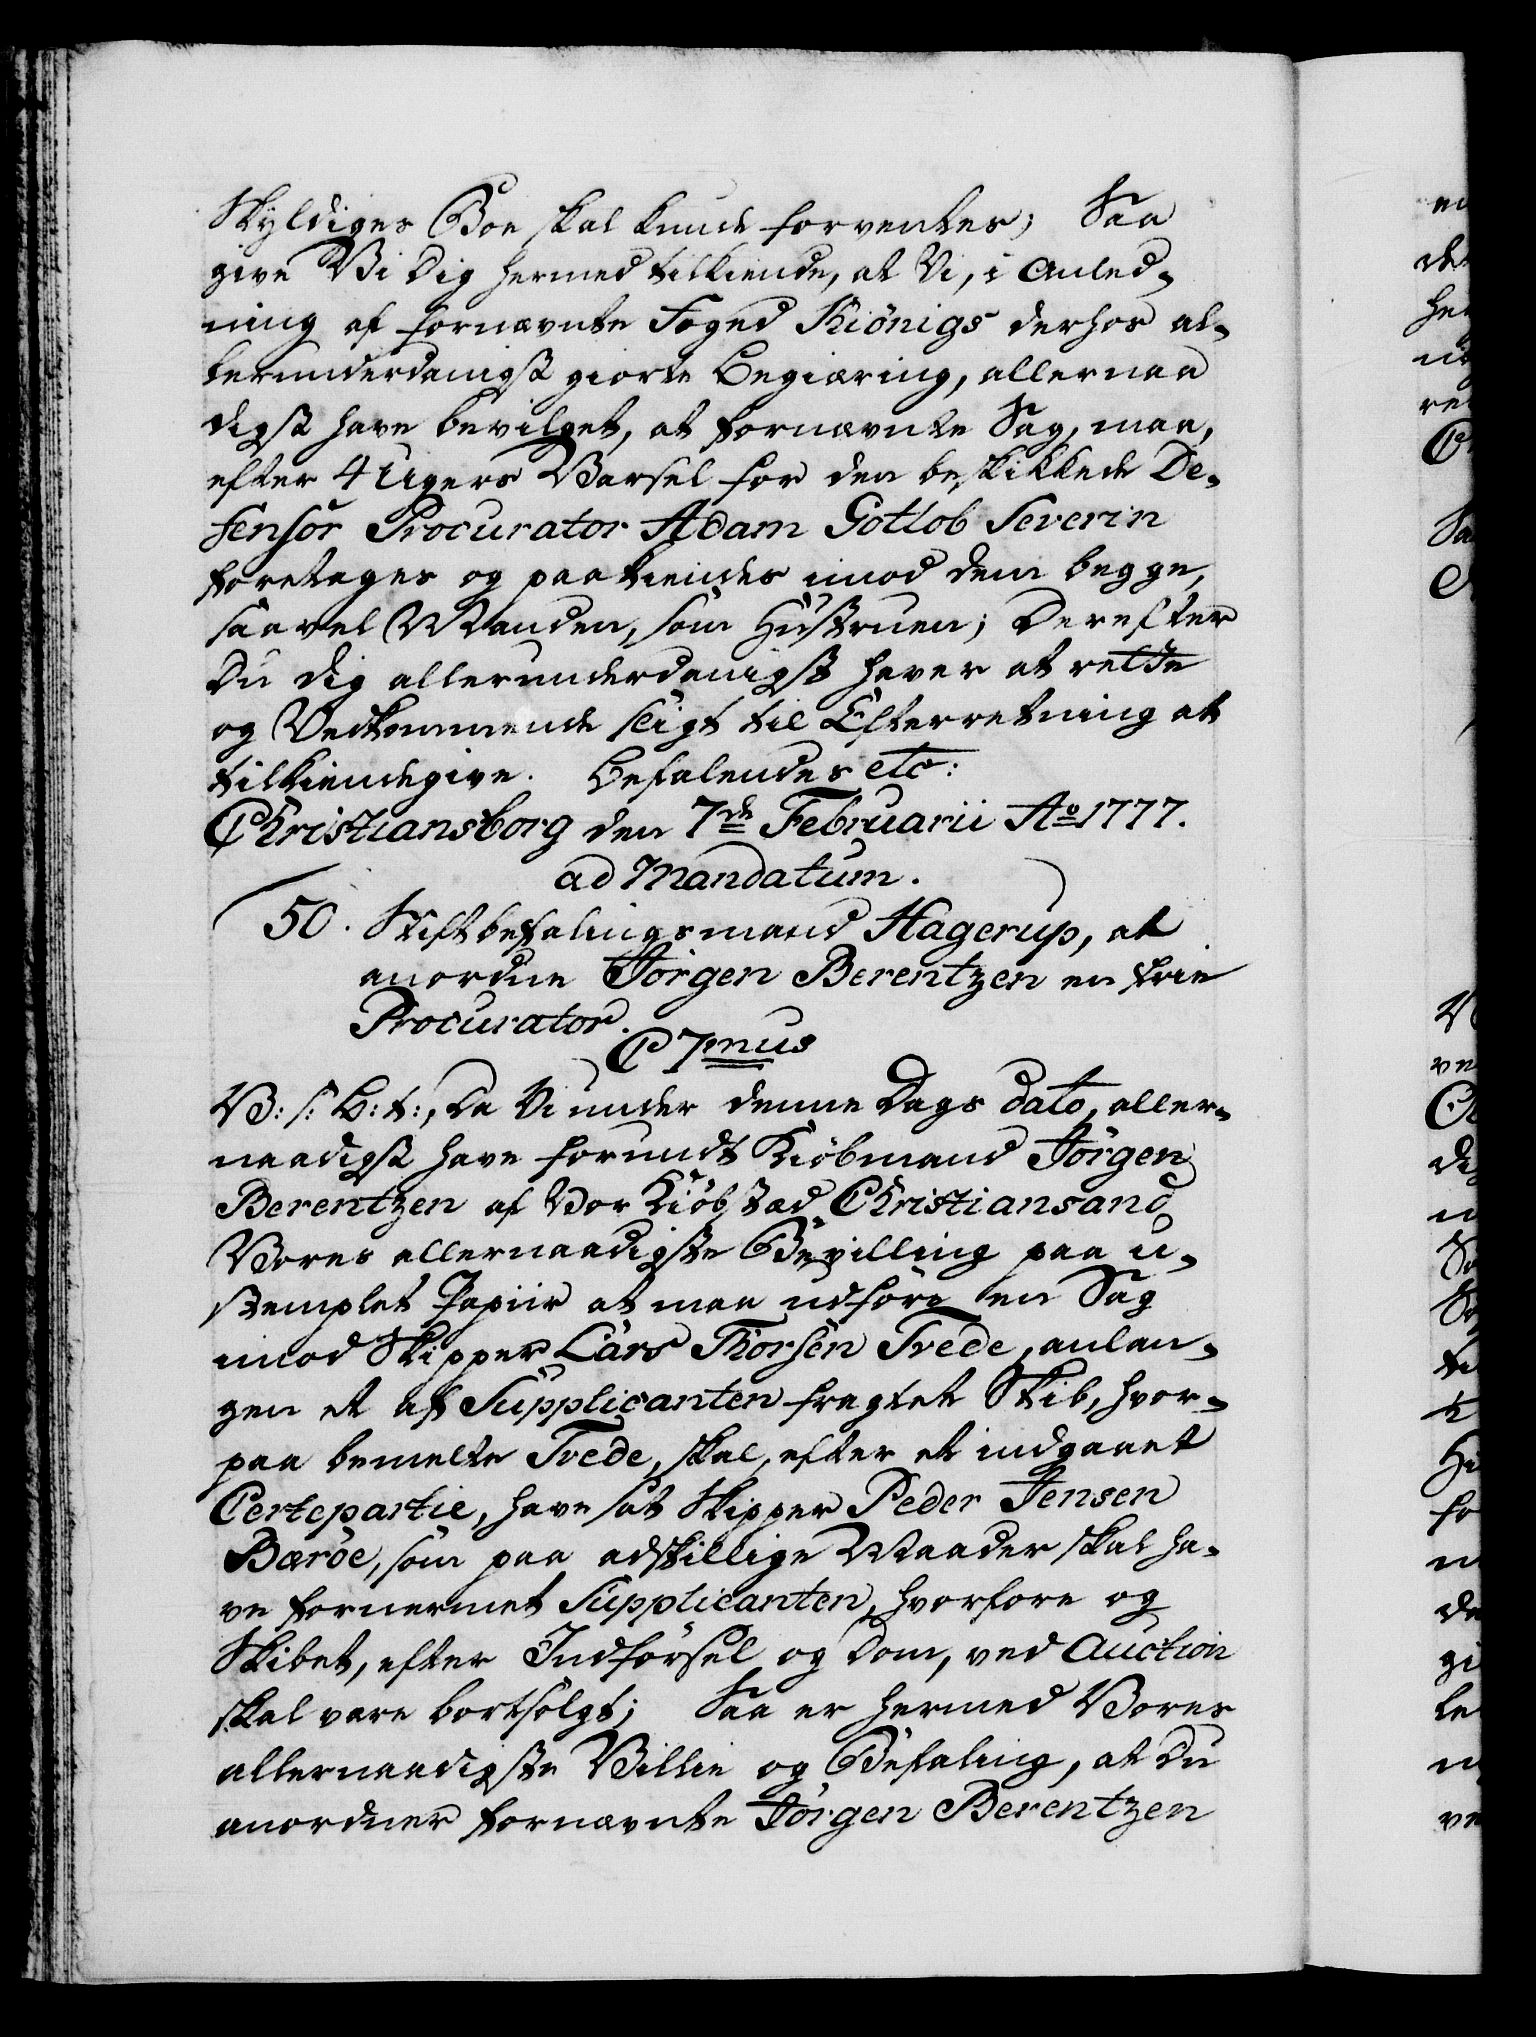 Skyldiges Boe skal kunde forventes; Saa
give Vi Dig hermed tilkiende, at Vi, i Anled-
ning af fornævnte Foged Kiönigs derhos al-
lerunderdanigst giorte Begiæring, allernaa
digst have bevilget, at fornævnte Sag, maa,
efter 4 Ugers Varsel for den beskikkede De-
fensor Procurator Adam Gotlob Severin
foretages og paakiendes imod dem begge,
saavel Manden, som Hustruen; Derefter
Du dig allerunderdanigst haver at rette
og Vedkommende sligt til Efterretning at
tilkiendegive. Befalendes etc:
Christiansborg den 7de Februarii Ao 1777.
ad Mandatum.
50. Stiftbefalingsmand Hagerup, at
anordne Jörgen Berentzen en frie
Procurator.
C 7mus
V: s: B: t:, Da Vi under denne Dags dato, aller-
naadigst have forundt Kiöbmand Jörgen
Berentzen af Vor Kiöbstæd Christiansand
Vores allernaadigste Bevilling paa u-
stemplet Papiir at maa udföre en Sag
imod Skipper Lars Thorsen Trede, anlan-
gen et af Supplicanten fragtet Skib, hvor-
paa bemelte Trede, skal, efter et indgaaet
Certepartie, have sat Skipper Peder Jensen
Baröe, som paa adskillige Maader skal ha-
ve fornermet Supplicanten, hvorfore og
Skibet, efter Indförsel og Dom, ved Auction
skal være bortsolgt; Saa er hermed Vores
allernaadigste Villie og Befaling, at Du
anordner fornævnte Jörgen Berentzen